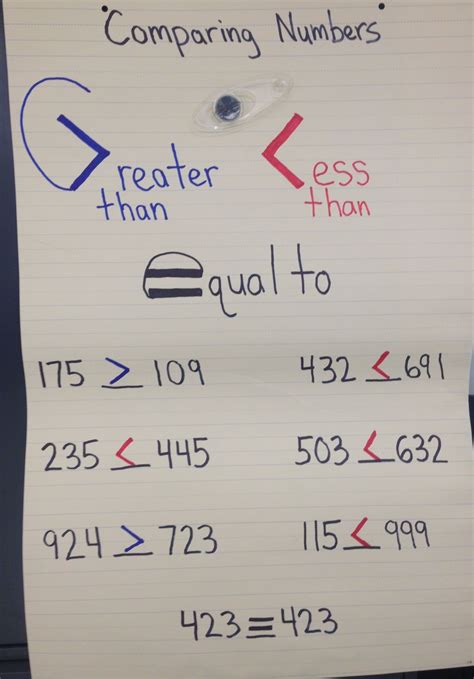 "Comparing Numbers"
Greater < ess
than than
Equal to
175 > 109 432 < 691
235 < 445 503 < 632
924 > 723 115 < 999
423 = 423